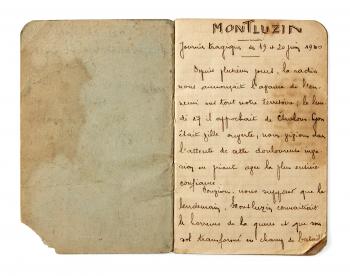 MONTLUZIN
Journées tragiques des 19 et 20 juin 1940
Depuis plusieurs jours, la radio
nous annonçait l'avance de l'en-
nemi sur tout notre territoire; le lun-
di 17 il approchait de Chalons. Lyon
était ville ouverte; nous vivions dans
l'attente de cette douloureuse
en priant avec la plus entière
confiance.
nous que le
lendemain, Montluzin connaitrait
les horreurs de la guerre et que son
sol transformé en champ de bataille